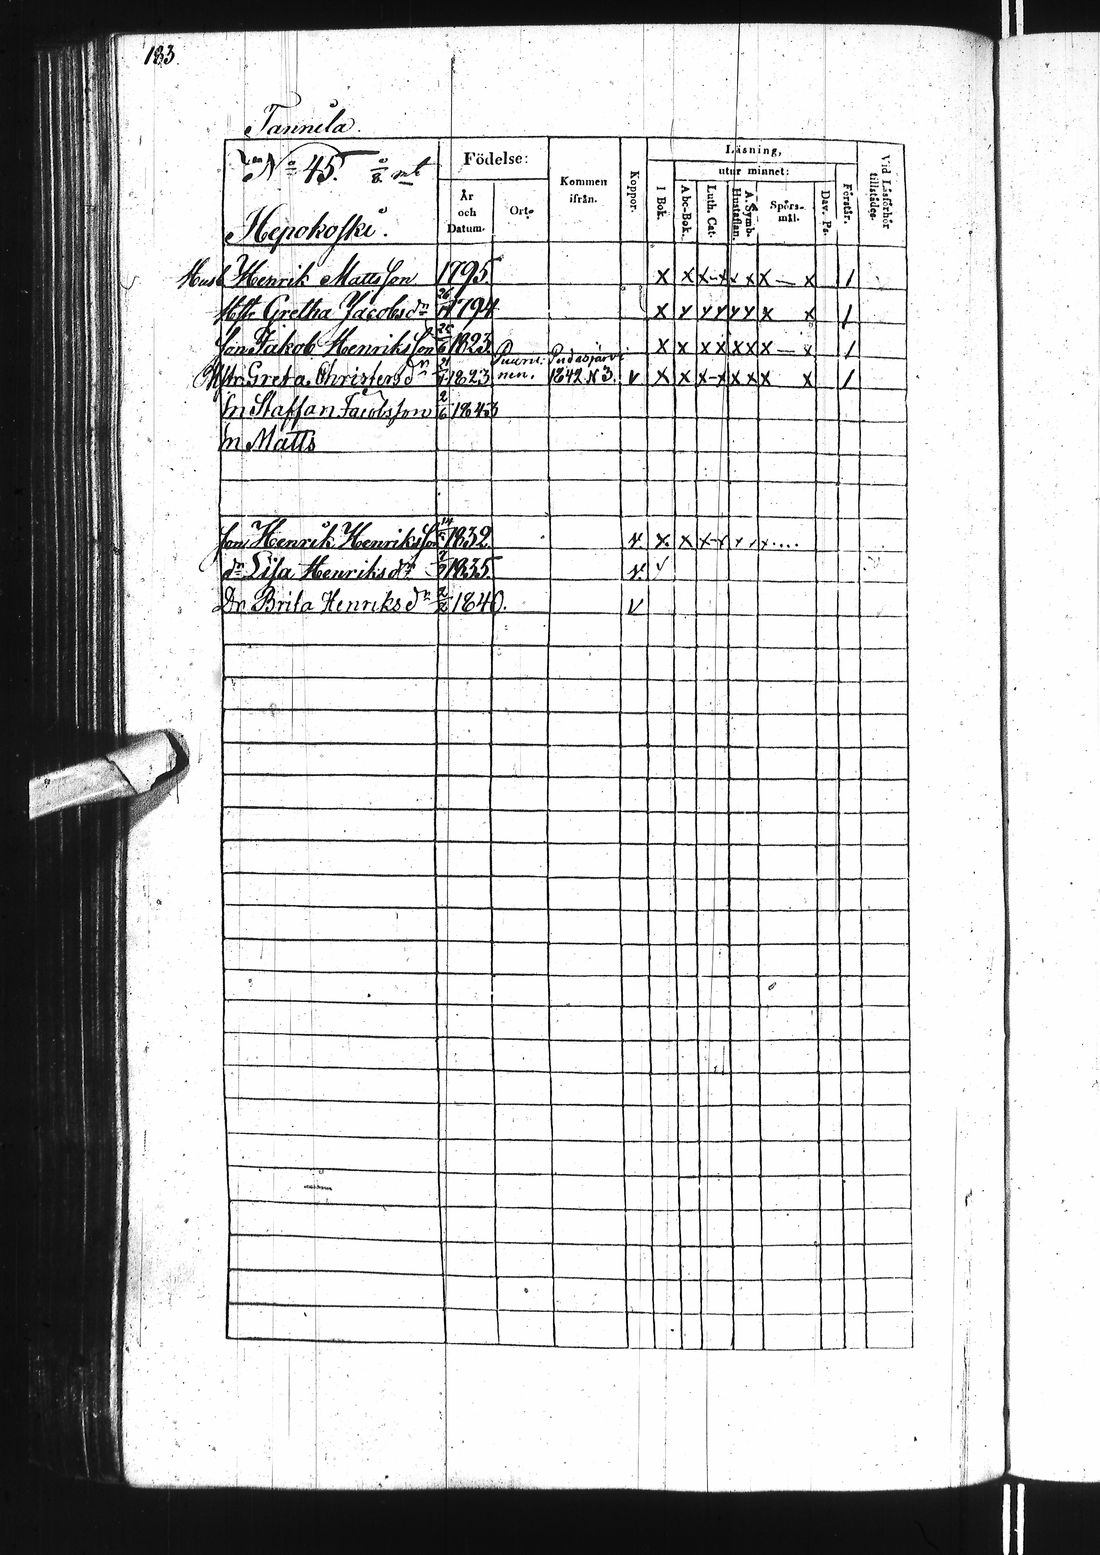 183.
Tannila.
No 45. mtl
Hepokoski.
Födelse:
År och Datum.
Ort.
Kommen ifrån.
Koppor.
Läsning,
utur minnet:
I Bok.
Abc-Bok.
Luth. Cat.
Hustaflan.
A. Symb.
Spörs-mål.
Dav. Ps.
Förstår.
Vid Läsförhör tillstädes.
Husb Henrik Mattsson 1795. X X X-X X X X — X 1
Hst. Gretha Jacobsdr 1794 X X X X X X X X 1
Son Jakob Henriksson 1823. X X X X X X X — X 1
Hstr. Greta Christersdr 1823 Pudasjärvi 1842 N 3. V X X X-X X X X X 1
Sn Staffan Jacobsson 2/6 1843
Sn Matts
Son Henrik Henriksson 1832 v. X X X-X x x x
dr Lisa Henriksdr 1835. v. v
Dr Brita Henriksdr 2/2 1840. V